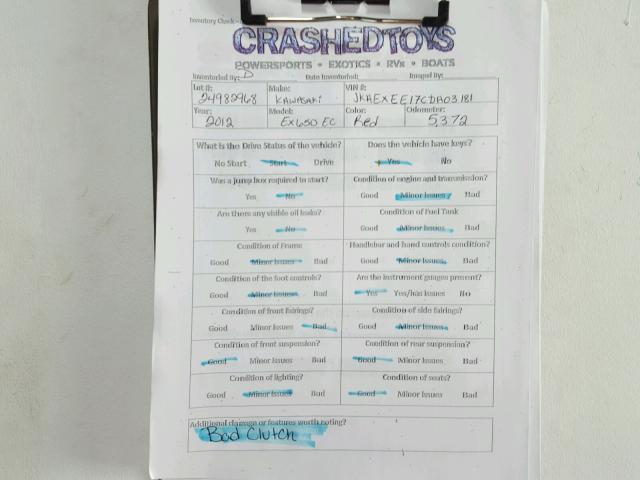 Inventory Check
CRASHEDTOYS
POWERSPORTS • EXOTICS • RVs • BOATS
Inventoried By: D Date Inventoried: Imaged By:
Lot #: Make: VIN #:
24982968 KAWASAKI JKAEXEE17CDA03181
Year: Model: Color: Odometer:
2012 EX650 EC Red 5,372
What is the Drive Status of the vehicle? Does the vehicle have keys?
No Start Start Drive Yes No
Was a jump box required to start? Condition of engine and transmission?
Yes No Good Minor Issues Bad
Are there any visible oil leaks? Condition of Fuel Tank
Yes No Good Minor Issues Bad
Condition of Frame Handlebar and hand controls condition?
Good Minor Issues Bad Good Minor Issues Bad
Condition of the foot controls? Are the instrument gauges present?
Good Minor Issues Bad Yes Yes/has issues No
Condition of front fairings? Condition of side fairings?
Good Minor Issues Bad Good Minor Issues Bad
Condition of front suspension? Condition of rear suspension?
Good Minor Issues Bad Good Minor Issues Bad
Condition of lighting? Condition of seats?
Good Minor Issues Bad Good Minor Issues Bad
Additional damage or features worth noting?
Bad Clutch